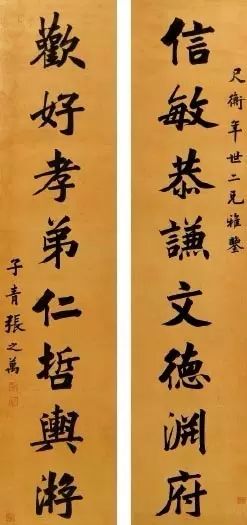 尺衡年世二兄雅鑒
信敏恭謙文德渊府
歡好孝弟仁哲輿游
子青張之萬